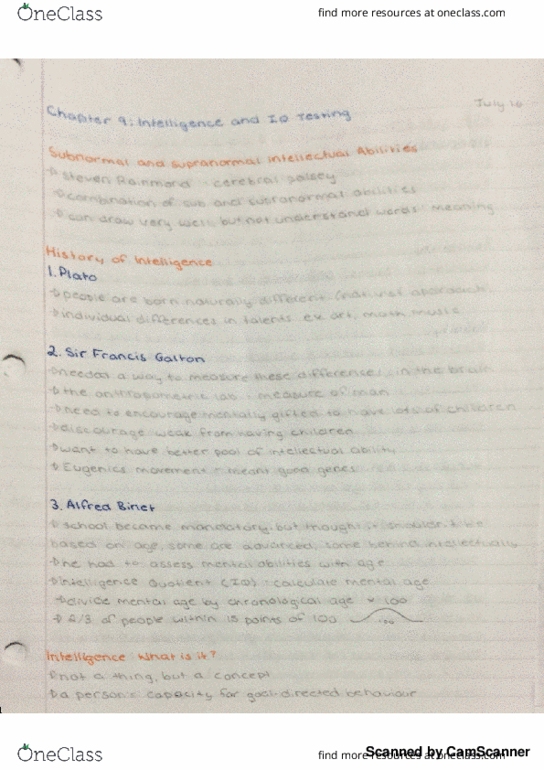 OneClass
find more resources at oneclass.com
July 16
Chapter 9: Intelligence and IQ Testing
Subnormal and supranormal intellectual Abilities
Steven - cerebral palsey
combination of sub and supranormal abilities
can draw very well, but not understand words meaning
History of Intelligence
1. Plato
people are born naturally different (nativist approach
individual differences in talents ex. art, math music
2. Sir Francis Galton
needed a way to measure these differences in the brain
the anthropometric lab - measure of man
need to encourage mentally gifted to have lots of children
discourage weak from having children
want to have better pool of intellectual ability
Eugenics movement - meant good genes
3. Alfred Binet
school became mandatory, but thought it shouldn't be
based on age, some are advanced, some behind intellectually
he had to assess mental abilities with age
Intelligence Quotient (IQ): calculate mental age
divide mental age by chronological age x 100
2/3 of people within 15 points of 100
100
Intelligence What is it?
not a thing, but a concept
a person's capacity for goal-directed behaviour
OneClass
find more resources at oneclass.com
Scanned by CamScanner